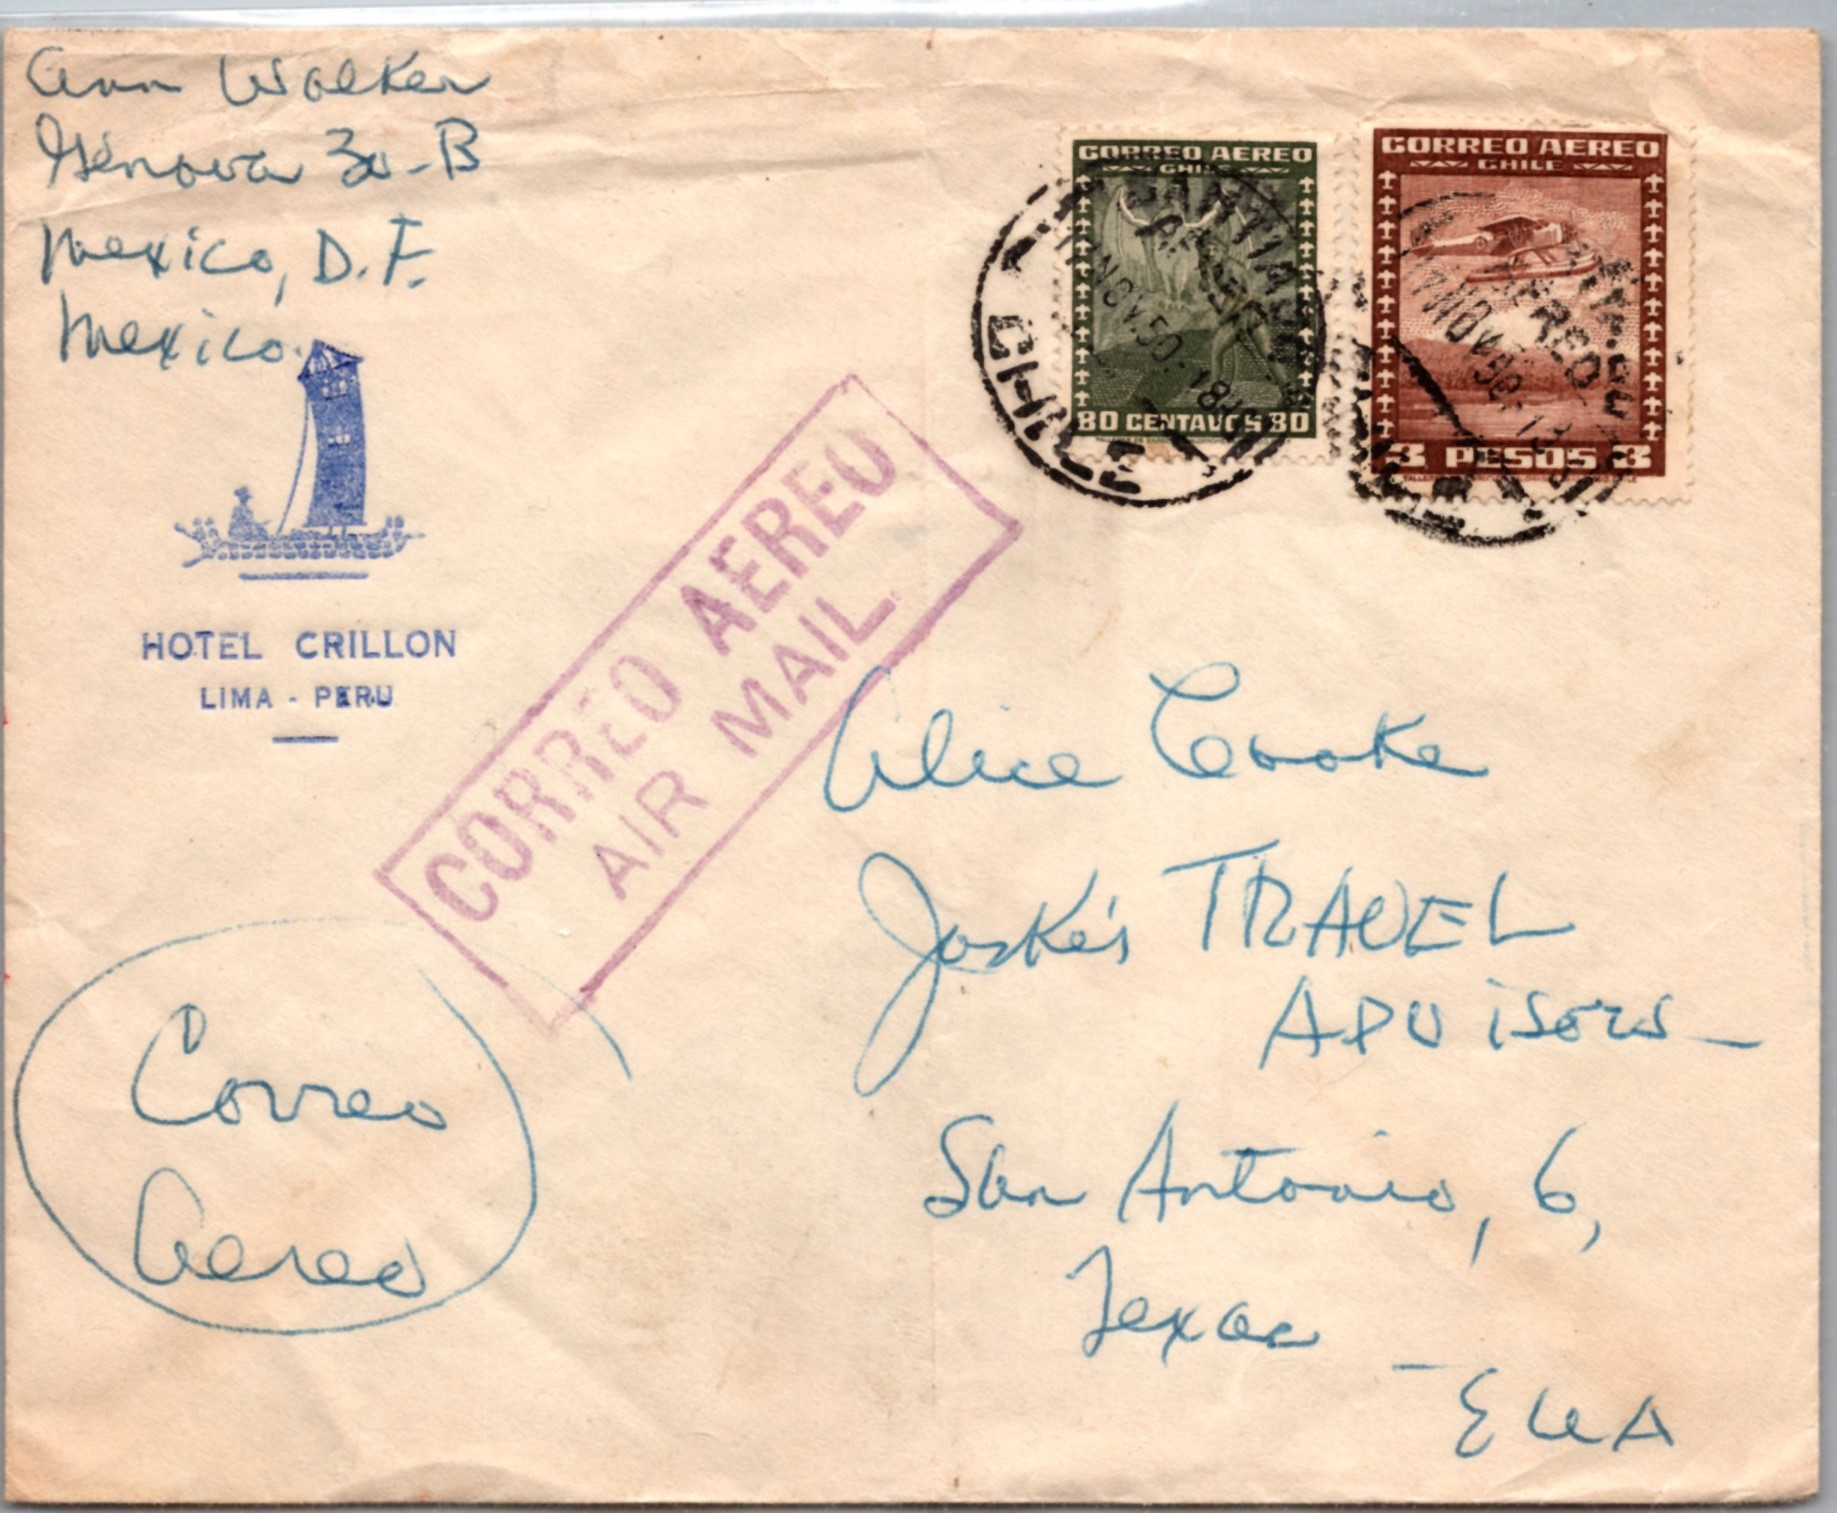 Ann Walker
Génova 30-B
Mexico, D.F.
Mexico.
CORREO AEREO
CHILE
80 CENTAVOS 80
CORREO AEREO
CHILE
3 PESOS 3
SANTIAGO
NOV.50
CHILE
HOTEL CRILLON
LIMA - PERU
CORREO AEREO
AIR MAIL
Alice Cooke
TRAVEL
ADVISORS
San Antonio, 6,
Texas
Correo
Aereo